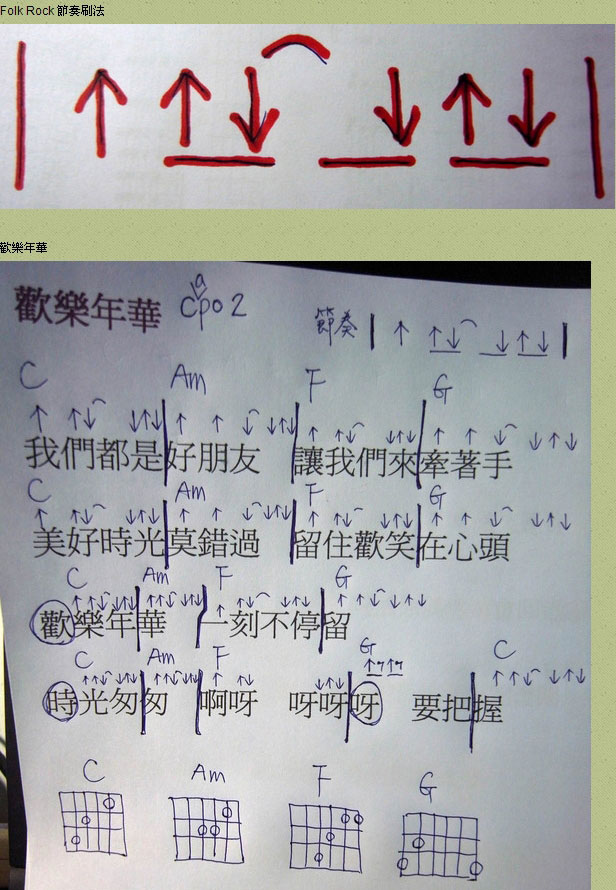 Folk Rock 節奏刷法
歡樂年華
歡樂年華 capo 2 節奏
C Am F G
我們都是好朋友 讓我們來牽著手
C Am F G
美好時光莫錯過 留住歡笑在心頭
C Am F G
歡樂年華 一刻不停留
C Am F G C
時光匆匆 啊呀 呀呀呀 要把握
C Am F G